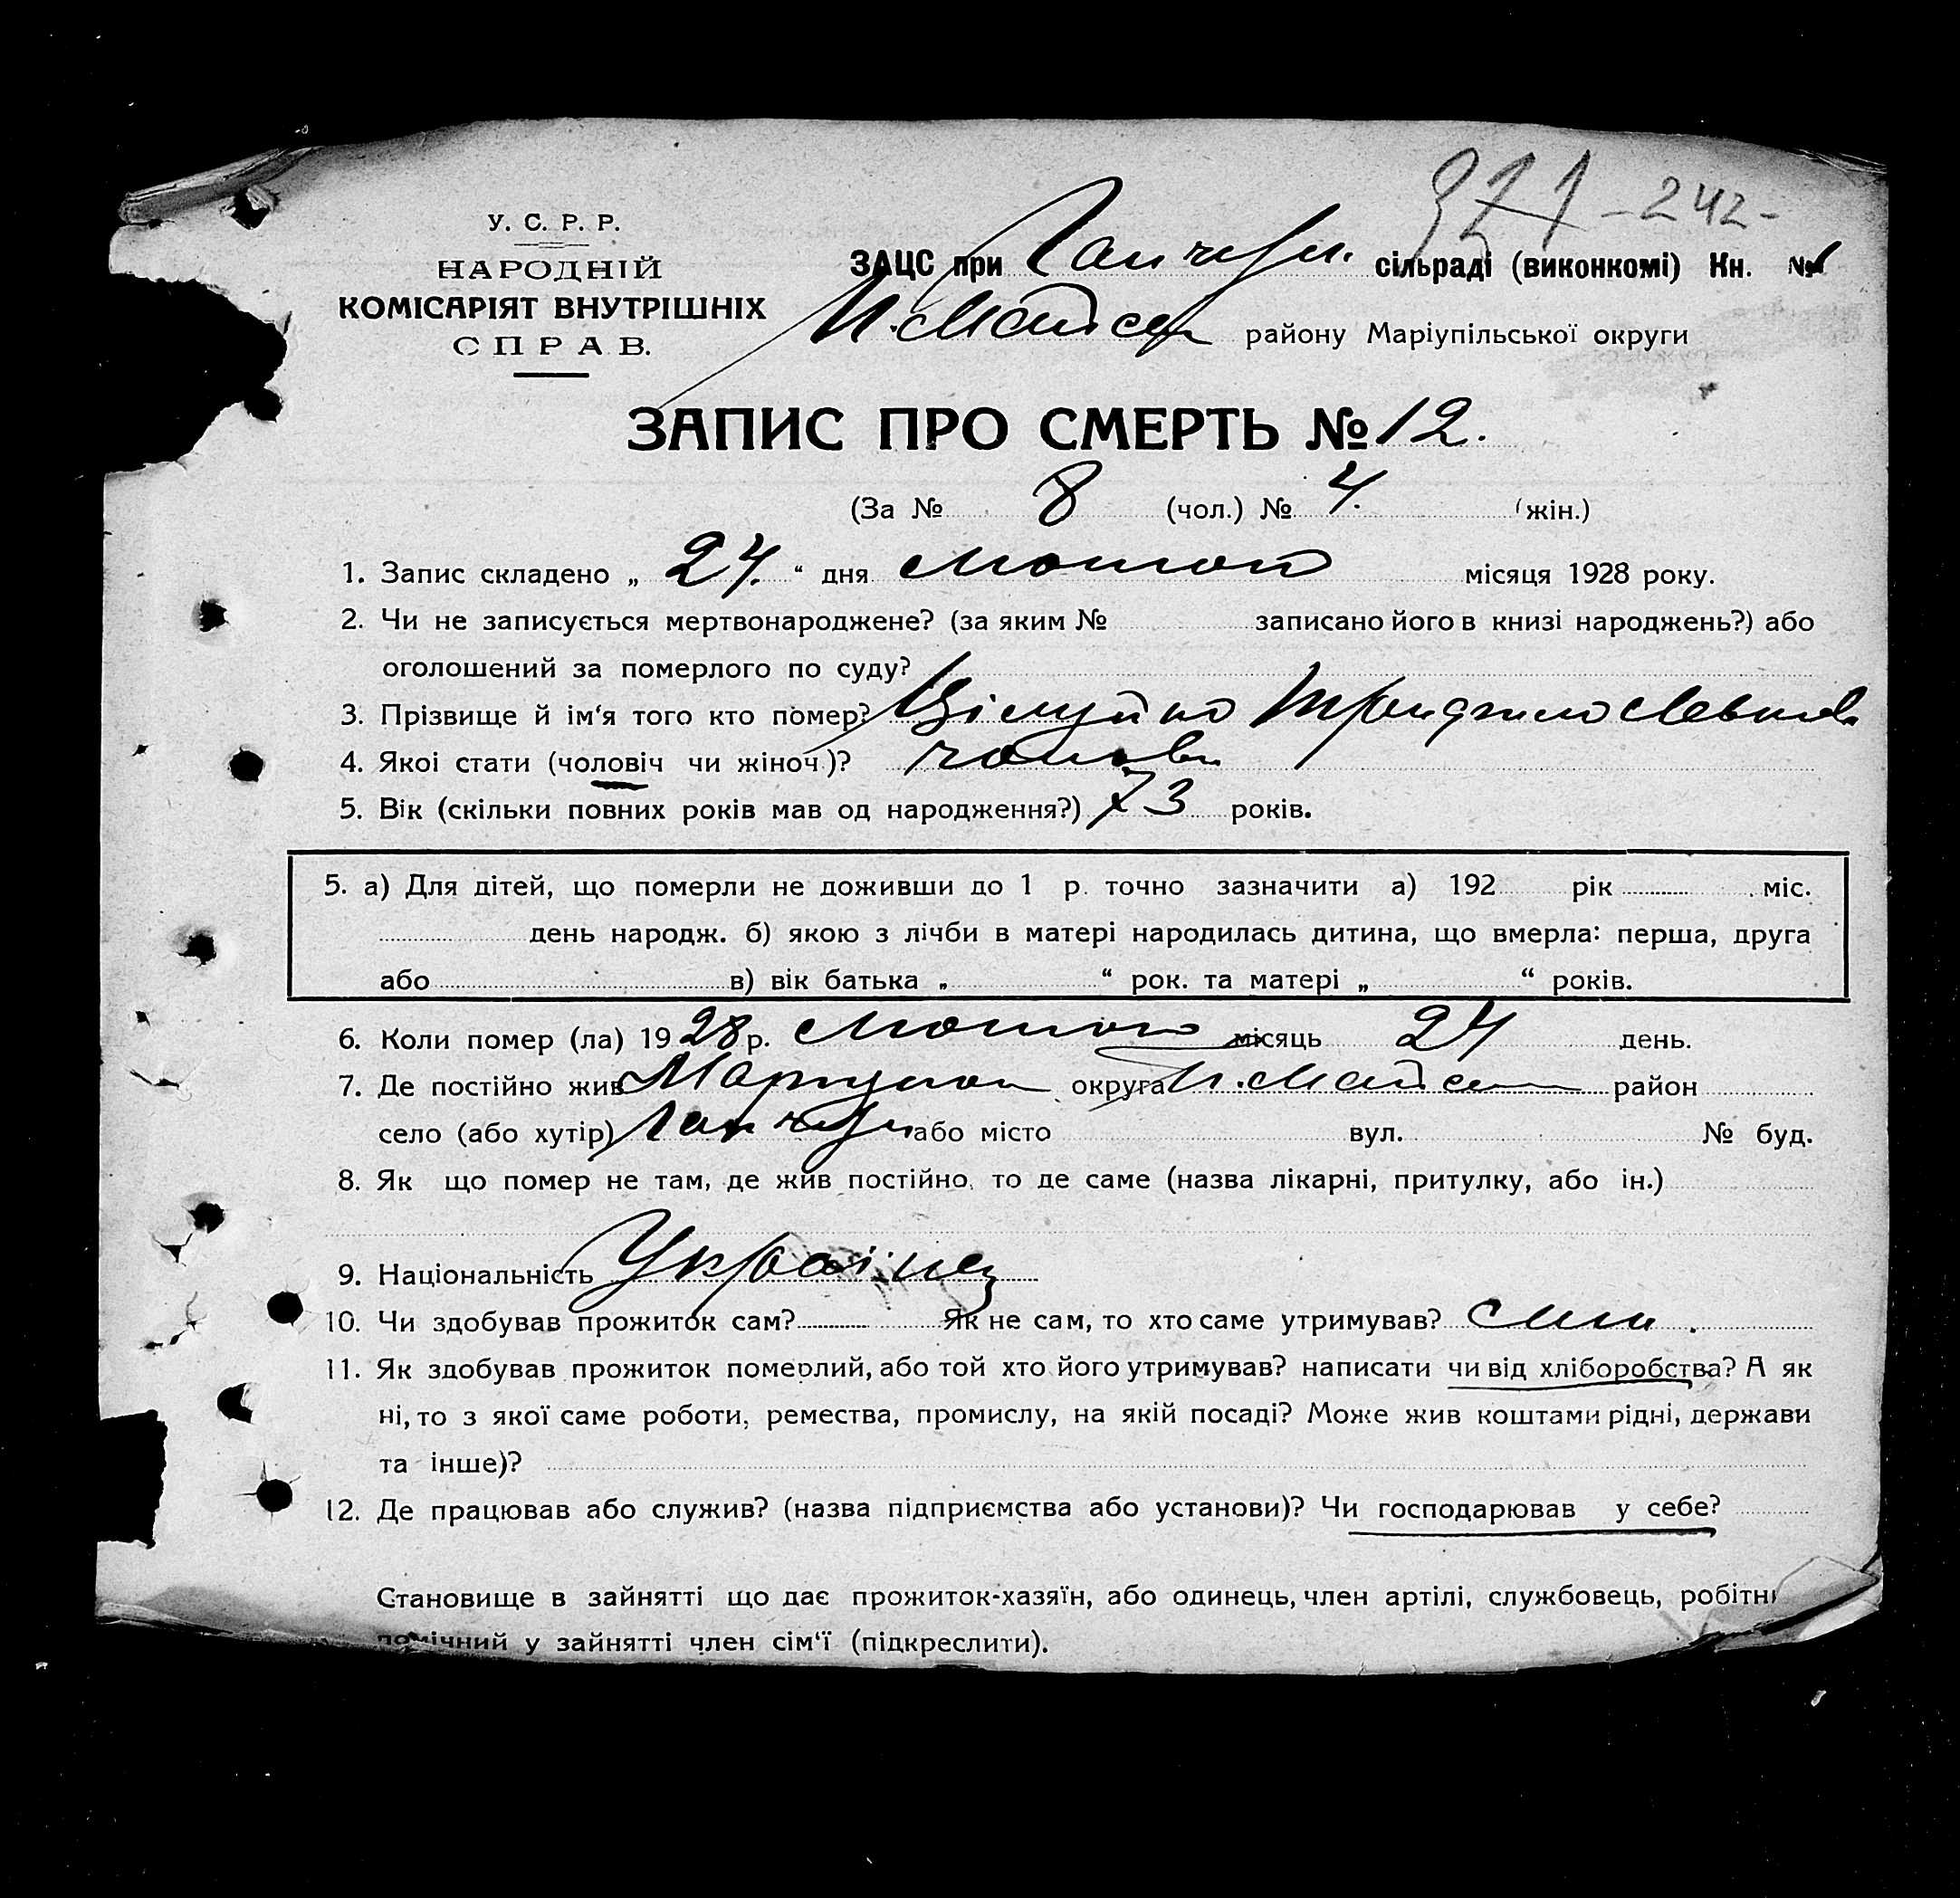 321 - 242 -
У. С. Р. Р.
НАРОДНІЙ
КОМІСАРІЯТ ВНУТРІШНІХ
СПРАВ.
ЗАЦС при сільраді (виконкомі) Кн. № 1
району Маріупільської округи
ЗАПИС ПРО СМЕРТЬ № 12.
(За № 8 (чол.) № 4. (жін.)
1. Запис складено „ 24. “ дня лютого місяця 1928 року.
2. Чи не записується мертвонароджене? (за яким № записано його в книзі народжень?) або
оголошений за померлого по суду?
3. Прізвище й ім‘я того кто помер? Цілуйко
4. Якоі стати (чоловіч чи жіноч.)? чолов
5. Вік (скільки повних років мав од народження?) 73 років.
5. а) Для дітей, що померли не доживши до 1 р. точно зазначити а) 192 рік міс.
день народж. б) якою з лічби в матері народилась дитина, що вмерла: перша, друга
або в) вік батька „ “ рок. та матері „ “ років.
6. Коли помер (ла) 1928 р. лютого місяць 24 день.
7. Де постійно жив округа район
село (або хутір) або місто вул. № буд.
8. Як що помер не там, де жив постійно, то де саме (назва лікарні, притулку, або ін.)
9. Національність Українец
10. Чи здобував прожиток сам? Як не сам, то хто саме утримував? син.
11. Як здобував прожиток померлий, або той хто його утримував? написати чи від хліборобства? А як
ні, то з якої саме роботи, ремества, промислу, на якій посаді? Може жив коштами рідні, держави
та інше)?
12. Де працював або служив? (назва підприємства або установи)? Чи господарював у себе?
Становище в зайнятті що дає прожиток-хазяїн, або одинець, член артілі, службовець, робітни
помічний у зайнятті член сім‘ї (підкреслити).